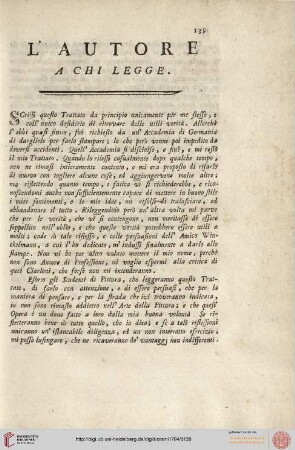 139
L'AUTORE
A CHI LEGGE.
SCrissi questo Trattato da principio unicamente per me stesso, e
coll' unico desiderio di ritrovare delle utili verità. Allorchè
l' ebbi quasi finito, fui richiesto da un' Accademia di Germania
di darglielo per farlo stampare; lo che però venne poi impedito da
diversi accidenti. Quell' Accademia si disciolse, e, mi restò
il mio Trattato. Quando lo rilessi casualmente dopo qualche tempo,
non ne rimasi interamente contento, e mi era proposto di rifarlo
di nuovo con togliere alcune cose, ed aggiungervene molte altre;
ma riflettendo quanto tempo, e fatica vi si richiederebbe, e rico-
noscendomi anche non sufficientemente capace di mettere in buono stile
i miei sentimenti, e le mie idee, mi risolsi di tralasciare, ed
abbandonare il tutto. Rileggendolo però un' altra volta mi parve
che per le verità, che vi si contengono, non meritasse di essere
seppellito nell' oblio, e che queste verità potrebbero essere utili a
molti; onde in tali riflessi, e colle persuasioni dell' Amico Win-
ckelmann, a cui l' ho dedicato, m' indussi finalmente a darlo alle
stampe. Non vi ho per altro voluto mettere il mio nome, perchè
non sono Autore di Professione, nè voglio espormi alla critica di
quei Ciarloni, che forse non mi intenderanno.
Esorto gli Studenti di Pittura, che leggeranno questo Trat-
tato, di farlo con attenzione, e di essere persuasi, che per la
maniera di pensare, e per la strada che ivi troveranno indicata,
io non sono rimasto addietro nell' Arte della Pittura; e che questa
Opera è un dono fatto a loro dalla mia buona volontà. Se ri-
fletteranno bene di tutto quello, che io dico; e se a tali riflessioni
uniranno un' instancabile diligenza, ed un non interrotto esercizio,
mi posso lusingare, che ne ricaveranno de' vantaggj non indifferenti.
http://digi.ub.uni-heidelberg.de/diglit/azara1784/0138